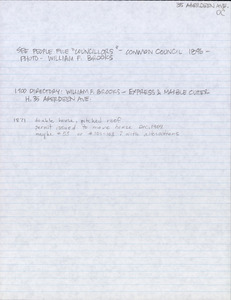 35 ABERDEEN AVE.
SEE PEOPLE FILE "COUNCILLORS" - COMMON COUNCIL 1896 -
PHOTO - WILLIAM F. BROOKS
1900 DIRECTORY: WILLIAM F. BROOKS - EXPRESS & MARBLE CUTTER
H. 35 ABERDEEN AVE
1871 double house, pitched roof
permit issued to move house
maybe # 37 or with alterations